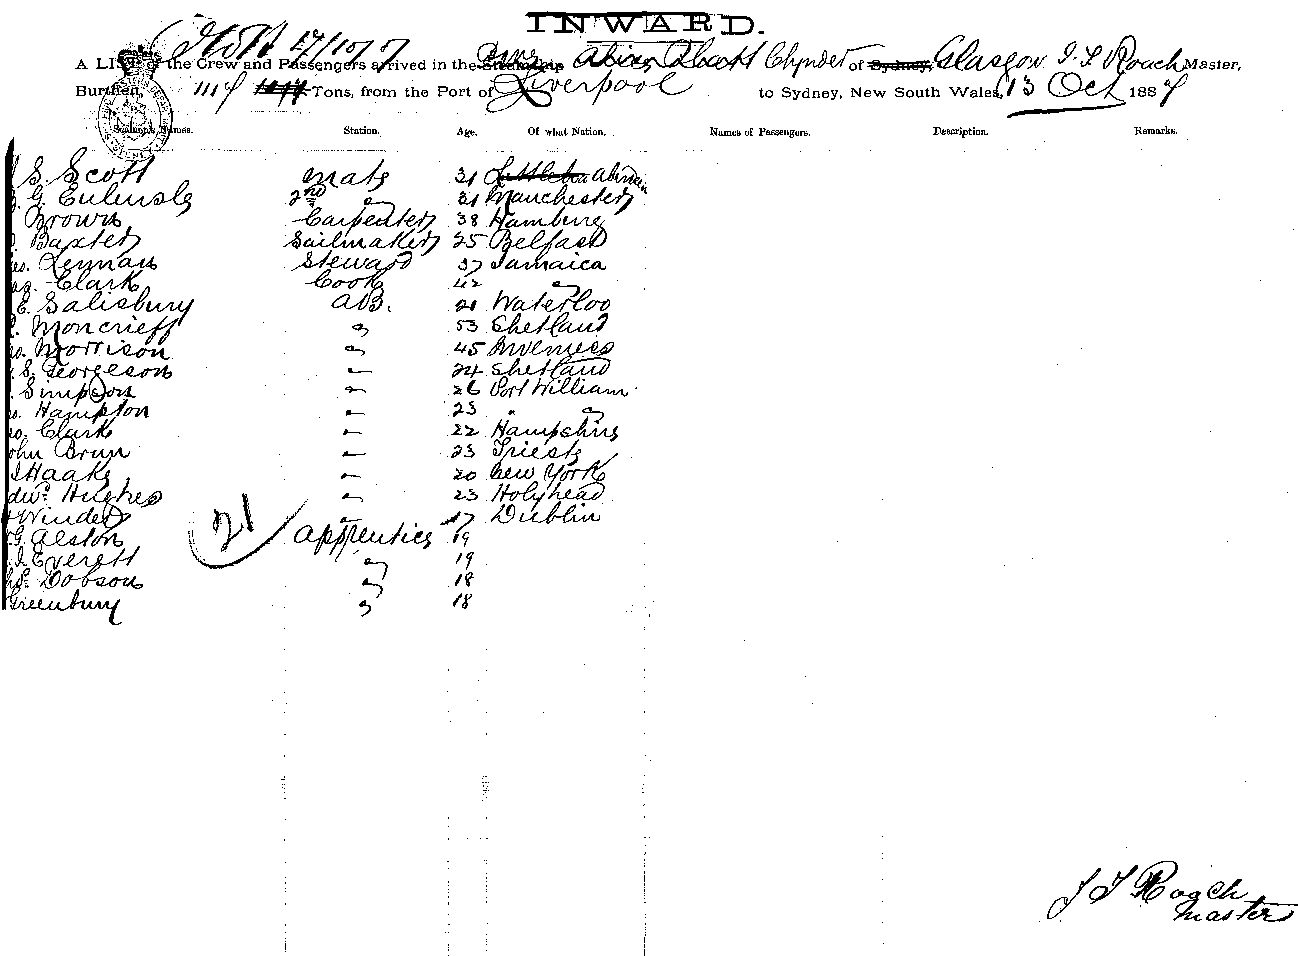 INWARD.
A LIST of the Crew and Passengers arrived in the Steamship of Sydney, Glasgow J. F. Roach Master,
Burthen, Tons, from the Port of Liverpool to Sydney, New South Wales, 13 Oct 1887
Seamen's Names. Station. Age. Of what Nation. Names of Passengers. Description. Remarks.
S. Scott Mate 31
G. 2nd " 31 Manchester
Brown Carpenter 38 Hamburg
Baxter Sailmaker 25 Belfast
Lennan Steward 37 Jamaica
Clark Cook 42 "
E. Salisbury AB. 21 Waterloo
Moncrieff " 53 Shetland
Morrison " 45 Inverness
S. Georgeson " 24 Shetland
Simpson " 26 Port William
Hampton " 23 " "
Clark " 22 Hampshire
John Brun " 23 Trieste
Haake " 20 New York
Edwd. Hughes " 23 Holyhead
Winder " 17 Dublin
21
G. Alston Apprentice 19
Everett " 19
Dobson " 18
Greenbury " 18
J F Roach
Master